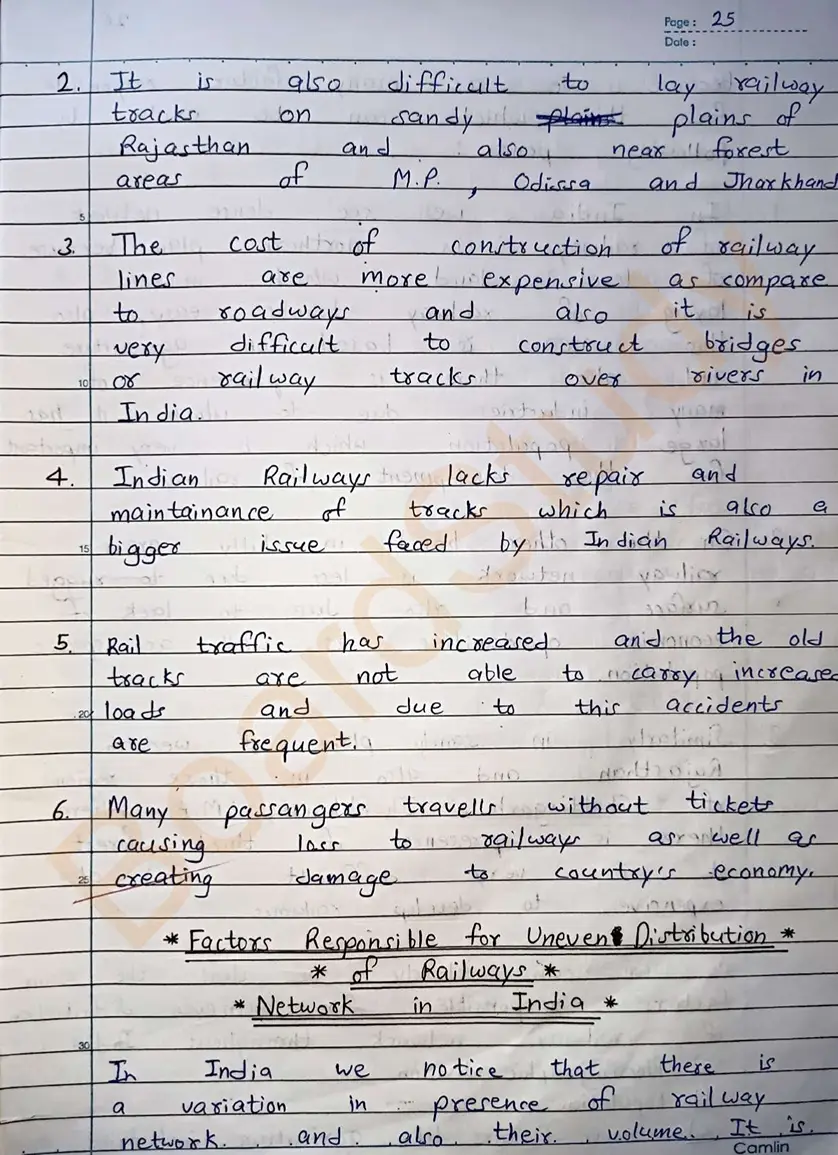 Page: 25
Date:
2. It is also difficult to lay railway
tracks on sandy plains plains of
Rajasthan and also near forest
areas of M.P., Odissa and Jharkhand
5
3. The cost of construction of railway
lines are more expensive as compare
to roadways and also it is
very difficult to construct bridges
10 or railway tracks over rivers in
India.
4. Indian Railways lacks repair and
maintainance of tracks which is also a
15 bigger issue faced by Indian Railways.
5. Rail traffic has increased and the old
tracks are not able to carry increased
20 loads and due to this accidents
are frequent.
6. Many passangers travells without tickets
causing loss to railways as well as
25 creating damage to country's economy.
* Factors Responsible for Uneven Distribution *
* of Railways *
* Network in India *
30
In India we notice that there is
a variation in presence of railway
network and also their volume. It is
Camlin
BoardStudy